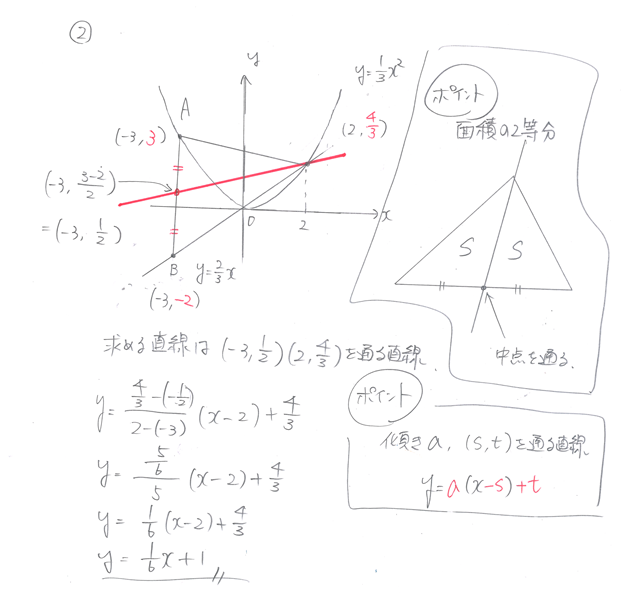 ②
y
y=1/3x²
A
(-3, 3)
(2, 4/3)
(-3, (3-2)/2)
=(-3, 1/2)
O
2
x
B
y=2/3x
(-3, -2)
ポイント
面積の2等分
S
S
中点を通る.
求める直線は (-3, 1/2) (2, 4/3) を通る直線.
y= (4/3-(-1/2))/(2-(-3)) (x-2)+4/3
y= (5/6)/5 (x-2)+4/3
y= 1/6 (x-2)+4/3
y= 1/6 x+1
ポイント
傾き a, (s,t) を通る直線.
y=a(x-s)+t